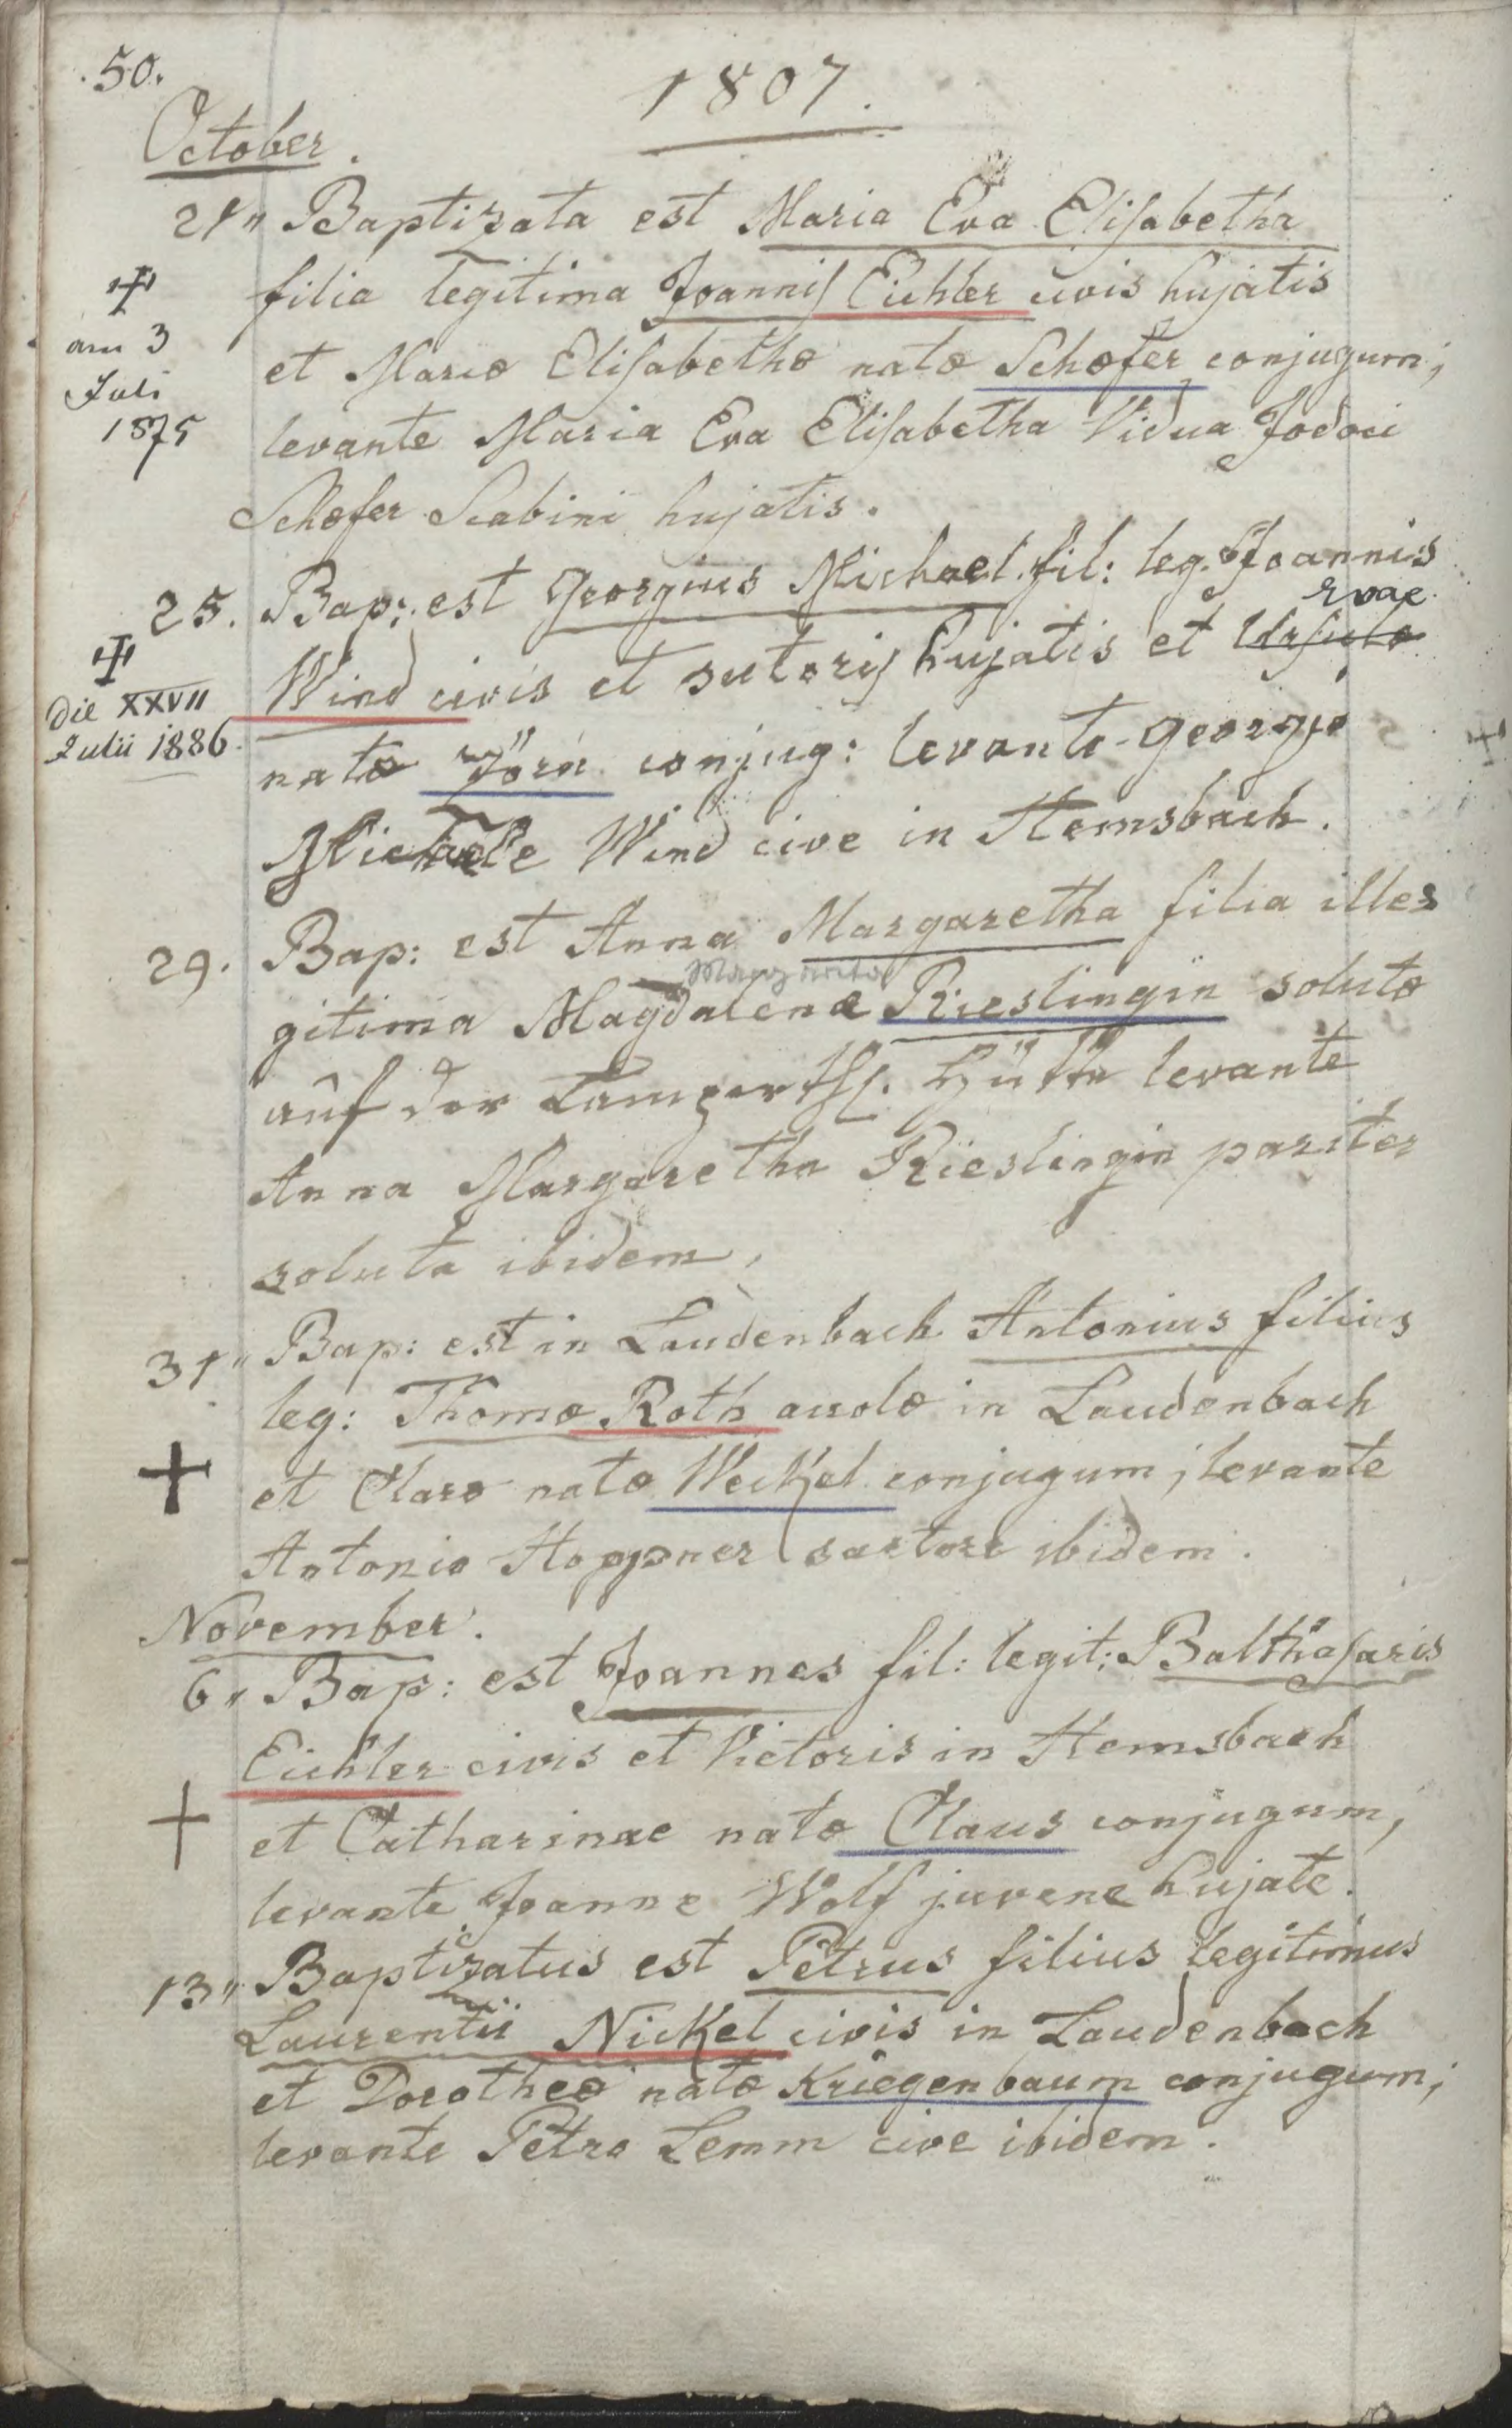 50.
1807.
October.
21" Baptizata est Maria Eva Elisabetha
filia legitima Joannis Eichler civis hujatis
et Mariæ Elisabethæ natæ Schæfer conjugum;
levante Maria Eva Elisabetha Vidua Jodoci
Schæfer Scabini hujatis.
✝
am 3
Juli
1875
25. Bap: est Georgius Michael fil: leg. Joannis
Evae
Wind civis et sutoris hujatis et Ursulæ
natæ Jörn conjug: levante Georgio
Michaele Wind cive in Hemsbach.
✝
die XXVII
Julii 1886.
29. Bap: est Anna Margaretha filia ille
gitima Magdalenæ Rieslingin solutæ
auf der Lamperth. Hütte levante
Anna Margaretha Rieslingin pariter
soluta ibidem,
31" Bap: est in Laudenbach Antonius filius
leg: Thomæ Roth accolæ in Laudenbach
et Claræ natæ Weckel conjugum; levante
Antonio Hoppner sartore ibidem.
✝
November.
6" Bap: est Joannes fil: legit: Balthasaris
Eichler civis et Vietoris in Hemsbach
et Catharinae natæ Claus conjugum;
levante Joanne Wolf juvene hujate.
✝
13" Baptizatus est Petrus filius legitimus
Laurentii Nickel civis in Laudenbach
et Dorotheæ natæ Kriegenbaum conjugum;
levante Petro Lemm cive ibidem.